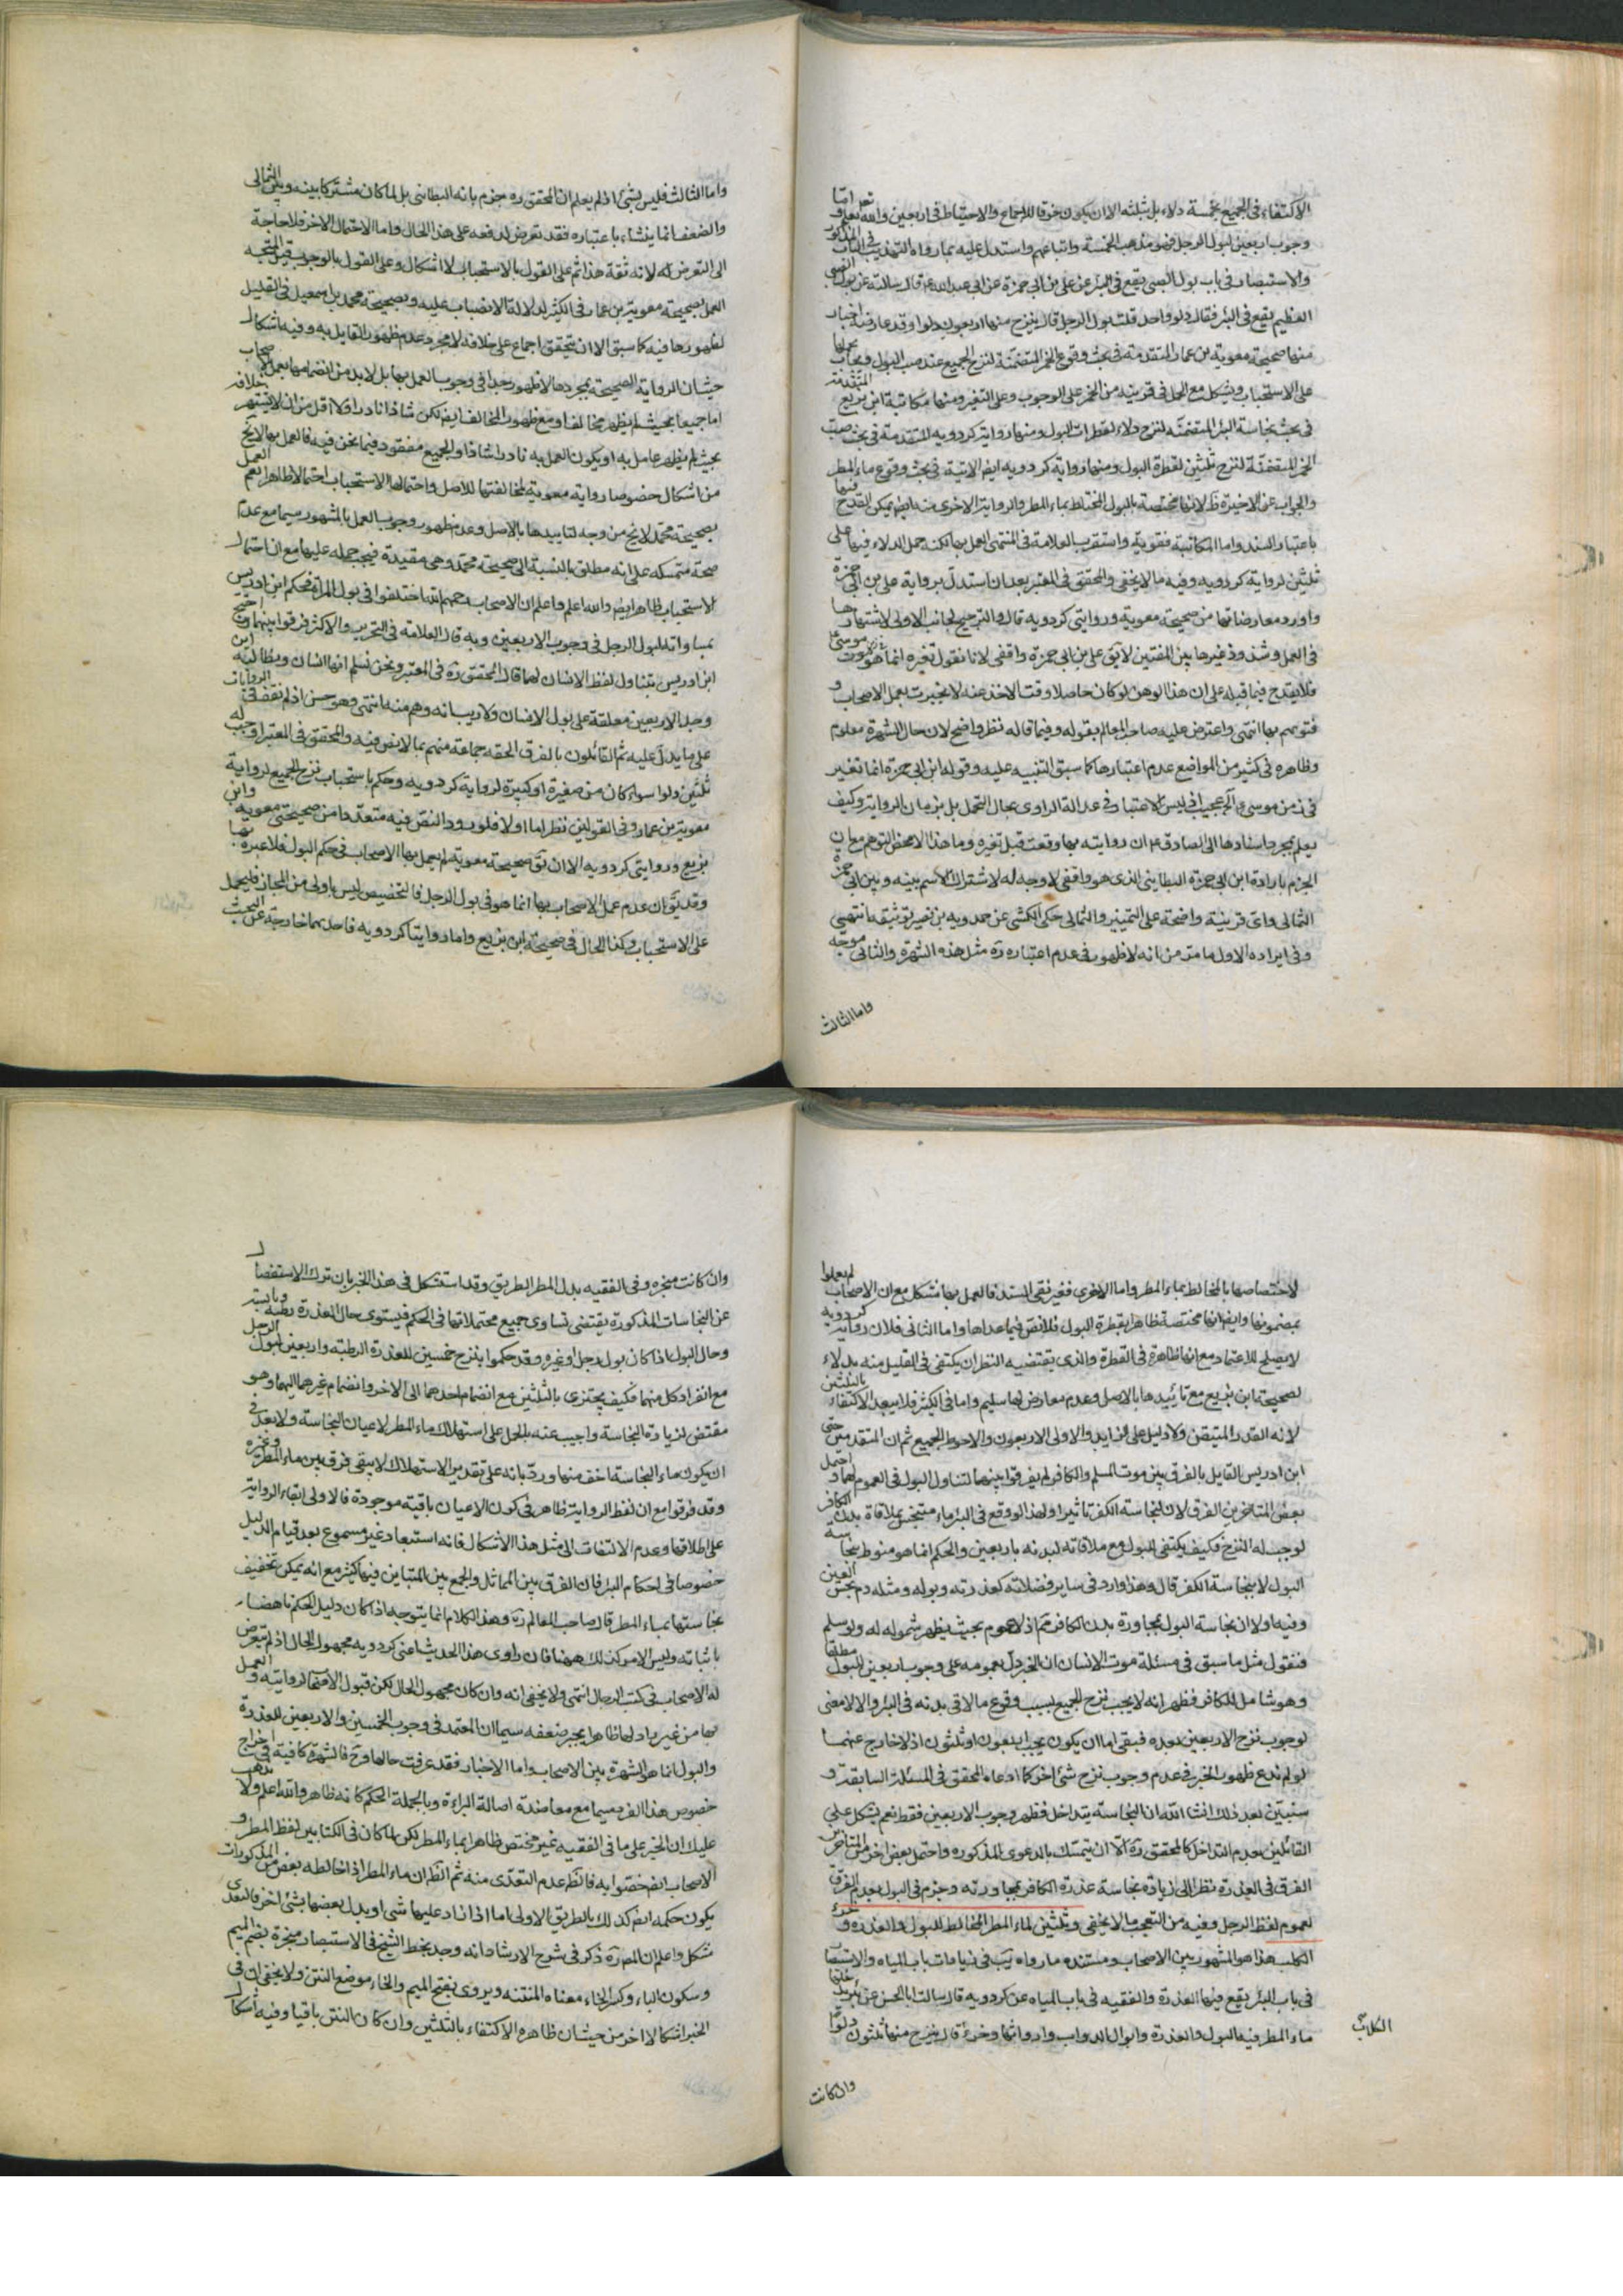 الاكتفاء في الجميع بخمسة دلاء بل بثلثه الا ان يكون خرقا للاجماع والاحتياط في اربعين والله تعالى يعلم اما
وجوب اربعين لبول الرجل فهو مذهب الخمسة واتباعهم واستدل عليه بما رواه التهذيب في الباب المذكور
والاستبصار في باب بول الصبي يقع في البئر عن علي بن ابي حمزة عن ابي عبد الله ع قال سالته عن بول الصبي
الفطيم يقع في البئر فقال دلو واحد قلت بول الرجل قال ينزح منها اربعون دلوا وقد عارضه اخبار
منها صحيحة معوية بن عمار المتقدمة في بحث وقوع الخمر المتضمنة لنزح الجميع عند صب البول ويجاب بحملها
على الاستحباب ويشكل مع الحمل في قرينه من الخمر على الوجوب وعلى التغير ومنها مكاتبة ابن بزيع المتقدمة
في بحث نجاسة البئر المتضمنة لنزح دلاء لقطرات البول ومنها رواية كردويه المتقدمة في بحث صب
الخمر المتضمنة لنزح ثلثين لقطرة البول ومنها رواية كردويه ايضا الاتية في بحث وقوع ماء المطر
والجواب عن الاخيرة ظ لانها مختصة بالبول المختلط بماء المطر والرواية الاخرى منه ايضا يمكن القدح فيها
باعتبار السند واما المكاتبة فقوية واستقرب العلامة في المنتهى العمل بها لكنه حمل الدلاء فيها على
ثلثين لرواية كردويه وفيه ما لا يخفى والمحقق في المعتبر بعد ان استدل برواية علي بن ابي حمزة
واورد معارضاتها من صحيحة معوية وروايتي كردويه قال والترجيح لجانب الاولى لاشتهارها
في العمل وشذوذ غيرها بين المفتين لا يق علي بن ابي حمزة واقفي لانا نقول تغيره انما هو في موت موسى ع
فلا يقدح فيما قبله على ان هذا الوهن لو كان حاصلا وقت الاخذ عنه لانجبرت بعمل الاصحاب و
فتويهم بها انتهى واعترض عليه صاحب المعالم بقوله وفيما قاله نظر واضح لان حال الشهرة معلوم
وظاهره في كثير من المواضع عدم اعتبارها كما سبق التنبيه عليه وقوله ابن ابي حمزة انما تغير
في زمن موسى ع الخ عجيب اذ ليس الاعتبار في عدالة الراوي بحال التحمل بل بزمان الرواية وكيف
يعلم بمجرد اسنادها الى الصادق ع ان روايته بها وقعت قبل تغيره وما هذا الا محض التوهم مع ان
الجزم بارادة ابن ابي حمزة البطايني الذي هو واقفي لا وجه له لاشتراك الاسم بينه وبين ابي حمزة
الثمالي واي قرينة واضحة على التمييز والثمالي حكى الكشي عن حمدويه بن نصير توثيقه انتهى
وفي ايراده الاول ما مر من انه لا ظهور في عدم اعتباره ره مثل هذه الشهرة والثاني موجه
واما الثالث
واما الثالث فليس بشئ اذ لم يعلم ان المحقق ره جزم بانه البطائني بل لما كان مشتركا بينه وبين الثمالي
والضعف انما ينشاء باعتباره فقد تعرض لدفعه على هذا الحال واما الاحتمال الاخر فلا حاجة
الى التعرض له لانه ثقة هذا ثم على القول بالاستحباب لا اشكال وعلى القول بالوجوب فالمتجه
العمل بصحيحة معوية بن عمار في الكثير لدلالة الانصباب عليه وبصحيحة محمد بن اسمعيل في القليل
لظهورها فيه كما سبق الا ان يتحقق اجماع على خلافه لا مجرد عدم ظهور القايل به وفيه اشكال
حيث ان الرواية الصحيحة بمجردها لا ظهور جدا في وجوب العمل بها بل لا بد من انضمامها بعمل الاصحاب
اما جميعا بحيث لم يظهر مخالف او مع ظهور المخالف ايضا لكن شاذا نادرا ولا اقل من ان لا يشتهر خلافه
بحيث لم يظهر عامل به او يكون العمل به نادرا شاذا والجميع مفقود فيما نحن فيه فالعمل بها لا يخ
من اشكال خصوصا رواية معوية لمخالفتها للاصل واحتمالها الاستحباب احتمالا ظاهرا نعم العمل
بصحيحة محمد لا يخ من وجه لتاييدها بالاصل وعدم ظهور وجوب العمل بالمشهور سيما مع عدم
صحة متمسكه على انه مطلق بالنسبة الى صحيحة محمد وهي مقيدة فيجب حمله عليها مع ان احتمال
الاستحباب ظاهر ايضا والله اعلم واعلم ان الاصحاب رحمهم الله اختلفوا في بول المراة فحكم ابن ادريس
بمساواته لبول الرجل في وجوب الاربعين وبه قال العلامة في التحرير والاكثر فرقوا بينهما واحتج
ابن ادريس بتناول لفظ الانسان لهما قال المحقق ره في المعتبر ونحن نسلم انها انسان ونطالبه اين
وجد الاربعين معلقة على بول الانسان ولا ريب انه وهم منه انتهى وهو حسن اذ لم نقف في الروايات
على ما يدل عليه ثم القائلون بالفرق الحقه جماعة منهم بما لا نص فيه والمحقق في المعتبر اوجب له
ثلثين دلوا سواء كان من صغيرة او كبيرة لرواية كردويه وحكم باستحباب نزح الجميع لرواية
معوية بن عمار وفي القولين نظر اما اولا فلورود النص فيه متعددا من صحيحتي معوية وابن
بزيع وروايتي كردويه الا ان يق صحيحة معوية لم يعمل بها الاصحاب في حكم البول فلا عبرة بها
وقد يق ان عدم عمل الاصحاب بها انما هو في بول الرجل فالتخصيص ليس باولى من المجاز فليحمل
على الاستحباب وكذا الحال في صحيحة ابن بزيع واما روايتا كردويه فاحديهما خارجة عن البحث
لاختصاصها بالمخالط بماء المطر واما الاخرى فغير نقي السند فالعمل بها مشكل مع ان الاصحاب لم يعملوا
بمضمونها وايضا انها مختصة ظاهرا بقطرة البول فلا نص فيما عداها واما الثاني فلان رواية كردويه
لا يصلح للاعتماد مع انها ظاهرة في القطرة والذي يقتضيه النظر ان يكتفى في القليل منه بدلاء
لصحيحة ابن بزيع مع تاييدها بالاصل وعدم معارض لها سليم واما في الكثير فلا يبعد الاكتفاء بالثلثين
لانه القدر المتيقن ولا دليل على الزايد والاولى الاربعون والاحوط الجميع ثم ان المتقدمين حتى
ابن ادريس القايل بالفرق بين موت المسلم والكافر لم يفرقوا بينهما لتناول البول في العموم لهما واحتمل
بعض المتاخرين الفرق لان لنجاسة الكفر تاثيرا ولهذا لو وقع في البئر ماء متنجس بملاقاة بدن الكافر
لوجب له النزح فكيف يكتفى للبول مع ملاقاته لبدنه باربعين والحكم انما هو منوط بنجاسة
البول لا بنجاسة الكفر قال وهذا وارد في ساير فضلاته كعذرته وبوله ومثله دم نجس العين
وفيه اولا ان نجاسة البول بمجاورة بدن الكافر مم اذ لا عموم بحيث يظهر شموله له ولو سلم
فنقول مثل ما سبق في مسئلة موت الانسان ان الخبر دل بعمومه على وجوب اربعين للبول مطلقا
وهو شامل للكافر فظهر انه لا يجب نزح الجميع بسبب وقوع ما لاقى بدنه في البئر والا لا معنى
لوجوب نزح الاربعين بعده فبقي اما ان يكون يجب اربعون او ثلثون اذ لا خارج عنهما
لو لم ندع ظهور الخبر في عدم وجوب نزح شئ اخر كما ادعاه المحقق في المسئلة السابقة و
سنبين بعد ذلك انشا الله ان النجاسة يتداخل فظهر وجوب الاربعين فقط نعم يشكل على
القائلين بعدم التداخل كالمحقق ره الا ان يتمسك بالدعوى المذكوره واحتمل بعض اخر من المتاخرين
الفرق في العذرة نظرا الى زيادة نجاسة عذرة الكافر بمجاورته وجزم في البول بعدم الفرق
لعموم لفظ الرجل وفيه من التعجب ما لا يخفى وثلثين لماء المطر المخالط للبول والعذرة وخرء
الكلب هذا هو المشهور بين الاصحاب ومستنده ما رواه يب في زيادات باب المياه والاستبصار
في باب البئر يقع فيها العذرة والفقيه في باب المياه عن كردويه قال سالت ابا الحسن ع عن بئر يدخلها
ماء المطر فيه البول والعذرة وابوال الدواب وارواثها وخرء الكلاب قال ينزح منها ثلثون دلوا
وان كانت
وان كانت منجره وفي الفقيه بدل المطر الطريق وقد استشكل في هذا الخبر بان ترك الاستفصال
عن النجاسات المذكورة يقتضي تساوي جميع محتملاتها في الحكم فيستوي حال العذرة رطبة ويابسة
وحال البول اذا كان بول رجل او غيره وقد حكموا بنزح خمسين للعذرة الرطبة واربعين لبول الرجل
مع انفراد كل منهما فكيف يجتزي بالثلثين مع انضمام احدهما الى الاخر وانضمام غيرهما اليهما وهو
مقتض لزيادة النجاسة واجيب عنه بالحمل على استهلاك ماء المطر لاعيان النجاسة ولا بعد في
ان يكون ماء النجاسة اخف منها ورد بانه على تقدير الاستهلاك لا يبقى فرق بين ماء المطر وغيره
وقد فرقوا مع ان لفظ الرواية ظاهر في كون الاعيان باقية موجودة فالاولى ابقاء الرواية
على اطلاقها وعدم الالتفات الى مثل هذا الاشكال فانه استبعاد غير مسموع بعد قيام الدليل
خصوصا في احكام البئر فان الفرق بين المماثل والجمع بين المتباين فيها كثير مع انه يمكن تخفيف
نجاستها بماء المطر قال صاحب المعالم ره وهذا الكلام انما يتوجه اذا كان دليل الحكم ناهضا
باثباته وليس الامر كذلك ههنا فان راوي هذا الحديث اعني كردويه مجهول الحال اذ لم يتعرض
له الاصحاب في كتب الرجال انتهى ولا يخفى انه وان كان مجهول الحال لكن قبول الاصحاب لروايته والعمل
بها من غير راد لها ظاهرا يجبر ضعفه سيما ان المعتمد في وجوب الخمسين والاربعين للعذرة
والبول انما هو الشهرة بين الاصحاب واما الاخبار فقد عرفت حالها وح فالشهرة كافية في اخراج
خصوص هذا الفرد سيما مع معاضدة اصالة البراءة وبالجملة الحكم كانه ظاهر والله اعلم ولا يذهب
عليك ان الخبر على ما في الفقيه غير مختص ظاهرا بماء المطر لكن لما كان في الكتابين لفظ المطر و
الاصحاب ايضا خصوا به فالظ عدم التعدي منه ثم الظ ان ماء المطر اذا خالطه بعض من المذكورات
يكون حكمه ايضا كذلك بالطريق الاولى اما اذا زاد عليها شئ او بدل بعضها بشئ اخر فالتعدي
مشكل واعلم ان المصره ذكر في شرح الارشاد انه وجد بخط الشيخ في الاستبصار منجرة بضم الميم
وسكون الباء وكسر الخاء معناه المنتنه ويروى بفتح الميم والخاء موضع النتن ولا يخفى ان في
الخبر اشكالا اخر من حيث ان ظاهره الاكتفاء بالثلثين وان كان النتن باقيا وفيه اشكال